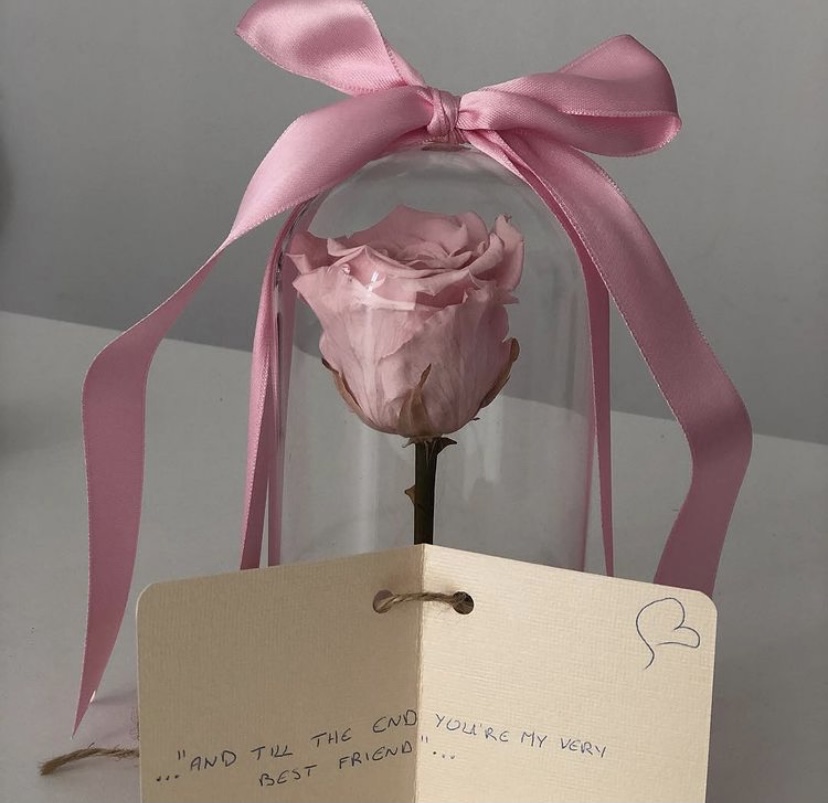 ..."AND TILL THE END YOU'RE MY VERY
BEST FRIEND"...